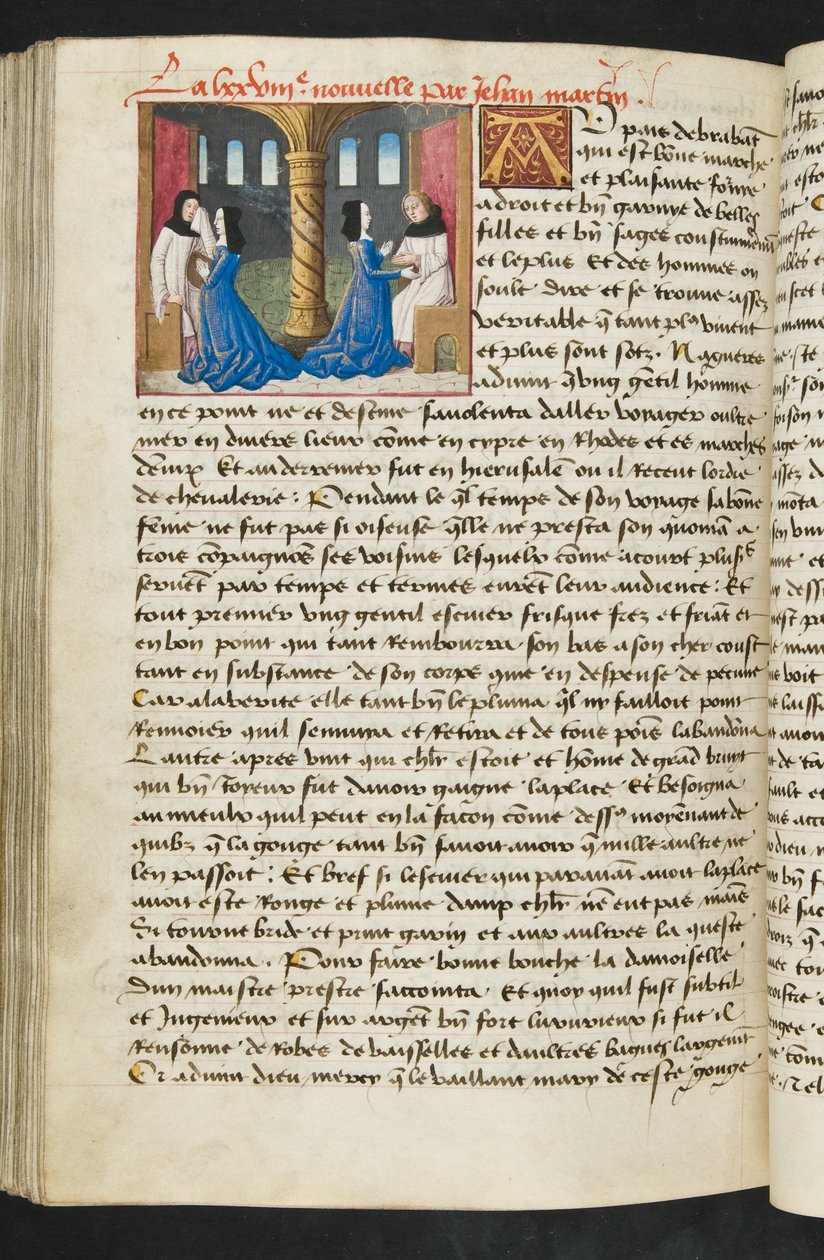 La lxxviij.e nouvelle par Jehan martin .
AU pais de brabãt
qui est bõne marche
et plaisante fornie
a droit et bñ garnye de belles
filles et bñ sages coustumieremt
et le plus Et des hommes on
soult dire et se trouue assez
veritable q̃ tant pl9 viuent
et plus sont sotz. Nagueres
aduint q̃ vng gẽtil homme
en ce point ne et destine sauolenta daller voyager oultre
mer en diuers lieux cõme en cypre en Rhodes et es marches
denuirõ Et au derrenier fut en hierusalẽ ou il Receut lordre
de cheualerie : Pendant le ql̃ temps de son voyage sa bõne
fẽme ne fut pas si oiseuse qlle ne presta son quoniã a
trois cõpaignõs ses voisins lesquelx cõme a court plus9s
seruẽt par temps et termes eurẽt leur audience : Et
tout premier vng gentil escuier frisque frez et friãt et
en bon point qui tant Rembourra son bas a son cher coust
tant en substance de son corps que en despense de pecune
Car a la verite elle tant bñ le pluma ql̃ ny failloit point
Renuoier quil sennuya et Retira et de tous pois labandõna
Lautre apres vint qui chlr estoit et hõme de grãd bruyt
qui bñ Joyeux fut dauoir gaigne la place Et besoigna
au mieulx quil peut en la facon cõme dess9 moyẽnant de
quibz q̃ la gouge tant bñ sauoit auoir q̃ nulle aultre ne
len passoit : Et bref si lescuier qui parauãt auoit la place
auoit este Ronge et plume damp chlr nẽ eut pas mais
Si tourne bride et print garin et aux aultres la queste
abandonna . Pour faire bonne bouche la damoiselle
dun maistre prestre saccointa Et quoy quil fust subtil
et Ingenieux et sur argẽt bñ fort luxurieux si fut il
Rensonne de Robes de vaisselles et daultres bagues largemẽt
Or aduint dieu mercy q̃ le vaillant mary de ceste gouge